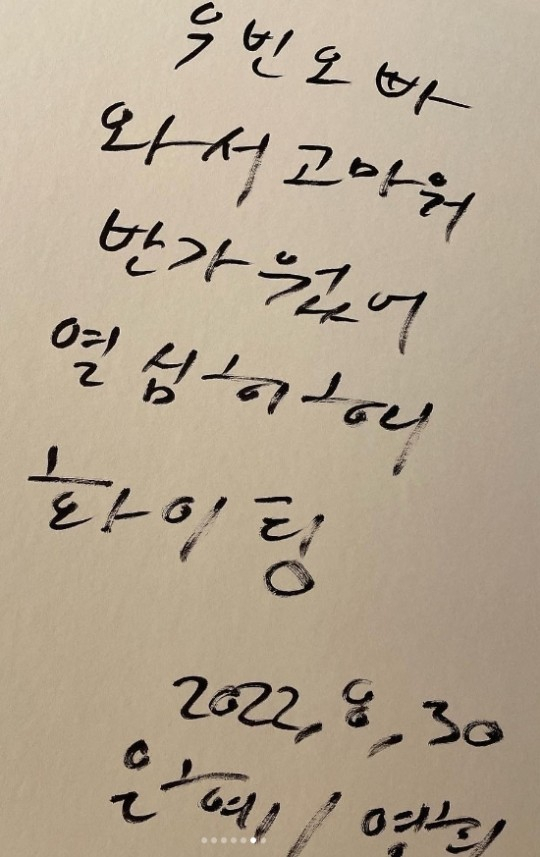 우빈오빠
와서 고마워
반가웠어
열심히해
화이팅
2022, 8, 30
은혜/영희